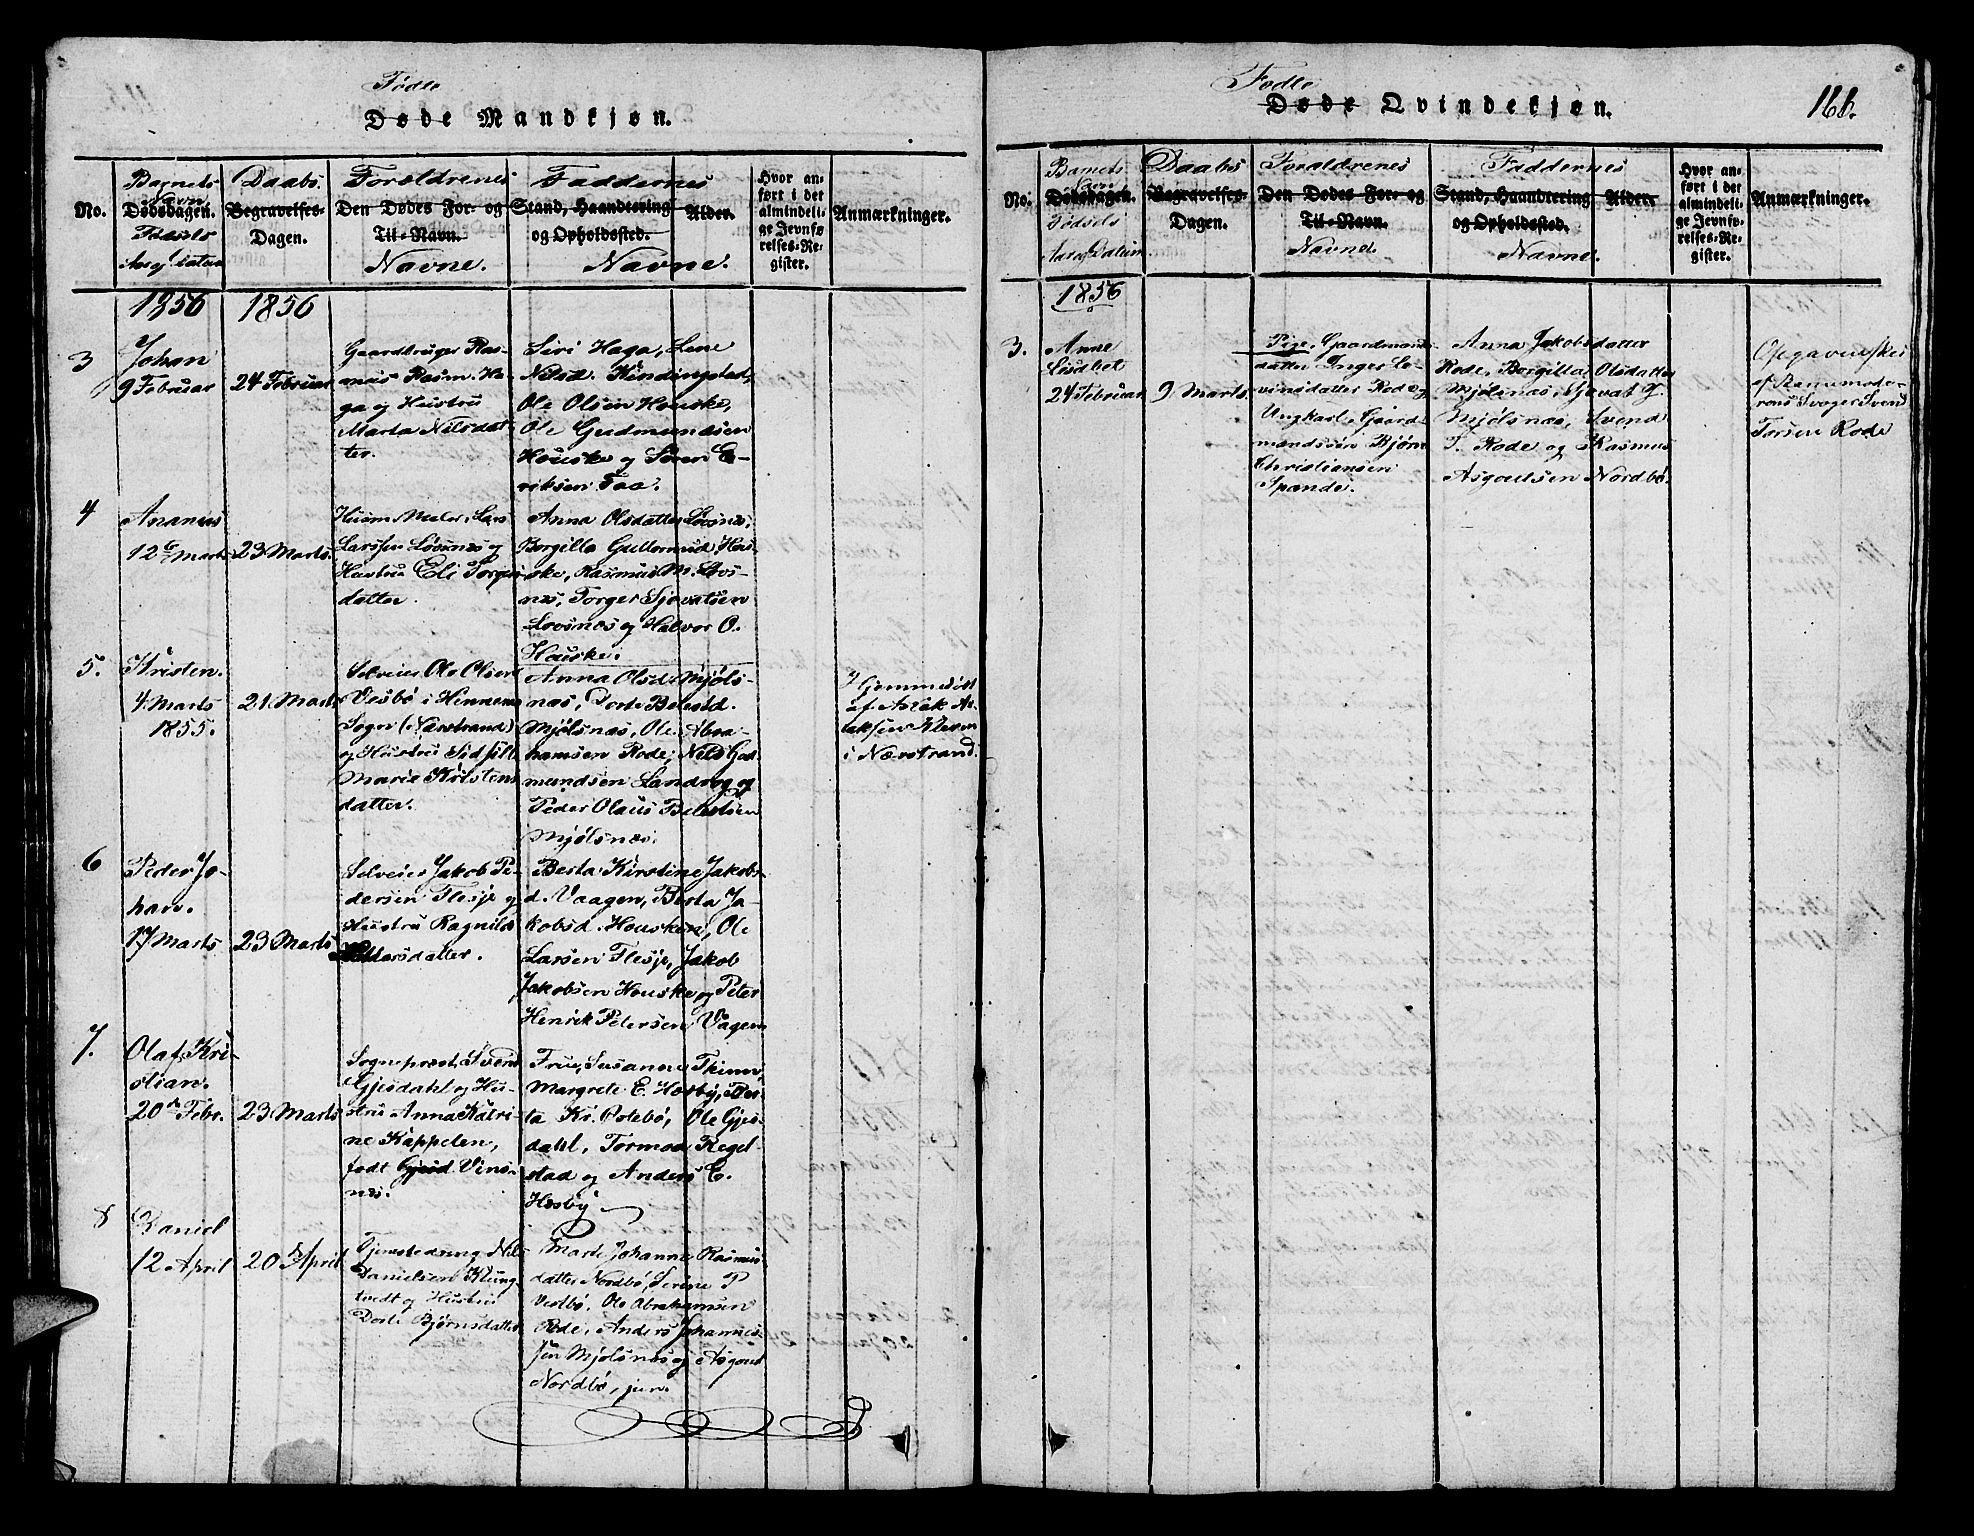 Fødte
Døde Mandkjøn.
No.
Barnets
Navn
Dødsdagen.
Fødsels
Aar og Datum
Daabs
Begravelses-
Dagen.
Forældrenes
Den Dødes For- og
Til-Navn.
Navne.
Faddernes
Stand, Haandtering
og Opholdssted.
Alder.
Navne.
Hvor an-
ført i det
almindeli-
ge Jevnfø
relses-Re-
gister.
Anmærkninger.
1856
1856
3
Johan
9 Februar
24 Februar
Gaardbruger Ras-
mus Rasm. Ha-
ga og Hustru
Marta Nilsdat-
ter.
Siri Haga, Lene
Nilsd. Kindingstad,
Ole Olsen Houske,
Ole Gudmundsen
Houske og Søren E-
riksen Faa.
4
Ananias
12 Marts
23 Marts.
Larssen Løvsnes og
Hustru Eli Torger-
datter.
Anna Olsdatter Løvsnes,
Borgilla Guttormsd. Hou-
ske, Rasmus M. Løvs-
nes, Torger Sjovatsen
Lovsnes og Halvor O.
Houske.
5.
Kristen.
4 Marts
1855.
21 Marts
Selveier Ole Olsen
Vesbø i Hinnera
Sogn (Nærstrand)
og Hustru Sidsill
Marie Kristens
datter.
Anna Olsd. Mjøls-
nas, Dorte Belestd.
Mjølsnas, Ole Abra-
hamsen Rode, Nils God-
mundsen Landrog og
Peder Olaus Belestsen
Mjølsnas.
Hjemmedøbt
af Aslak As-
laksen Kleven
i Nærstrand.
6
Peder Jo-
han.
17 Marts
23 Marts
Selveier Jakob Pe-
dersen Flesje og
Hustru Ragnilde
datter.
Berta Kirstine Jakobs-
d. Vaagen, Berta Ja-
kobsd. Housken, Ole
Larsen Flesje, Jakob
Jakobsen Houske og Peter
Henrik Petersen Vagen
7.
Olaf Kri-
stian.
20de Febr.
23 Marts
Sogneprest Svend
Gjesdahl og Hu-
stru Anna Katri-
ne Kappelen,
født Vins-
nes.
Frue Susanne Thinn,
Margrete E. Hæsby, Ber-
ta Kr. Ostebø, Ole Gjes-
dahl, Tormod Regel-
stad og Anders E.
Hæsby
8
Daniel
12 April
20 April
Tjenestedreng Nils
Danielsen Klung
tvedt og Hustru
Dorte Bjørnsdatter
Marte Johanne Rasmus
datter Nordbø, Serine T
Vestbø, Ole Abrahamsen
Rode, Anders Johannes-
sen Mjølsnas og Asgout
Nordbø, jun.
Fødte
Døde Qvindekjøn.
166.
No.
Barnets
Navn
Dødsdagen.
Fødsels
Aar og Datum
Daabs
Begravelses-
Dagen.
Forældrenes
Den Dødes For- og
Til-Navn.
Navne.
Faddernes
Stand, Haandtering
og Opholdssted.
Alder.
Navne.
Hvor an-
ført i det
almindeli-
ge Jevnfø-
relses-Re-
gister.
Anmærkninger.
1856
3.
Anne
Lisabet
24 Februar
9 Marts.
Pige, Gaardmands-
datter Inger Le-
vinsdatter Rode og
Ungkarl, Gaard-
mandssøn Bjørn
Christiansen
Spande.
Anna Jakobsdatter
Rode, Borgilla Olsdatter
Mjølsnas, Sjovat T.
Mjølsnas, Svend
T. Rode og Rasmus
Asgoutsen Nordbø.
Opgavenskes
af Barnemode-
rens Svoger Svend
Torsen Rode